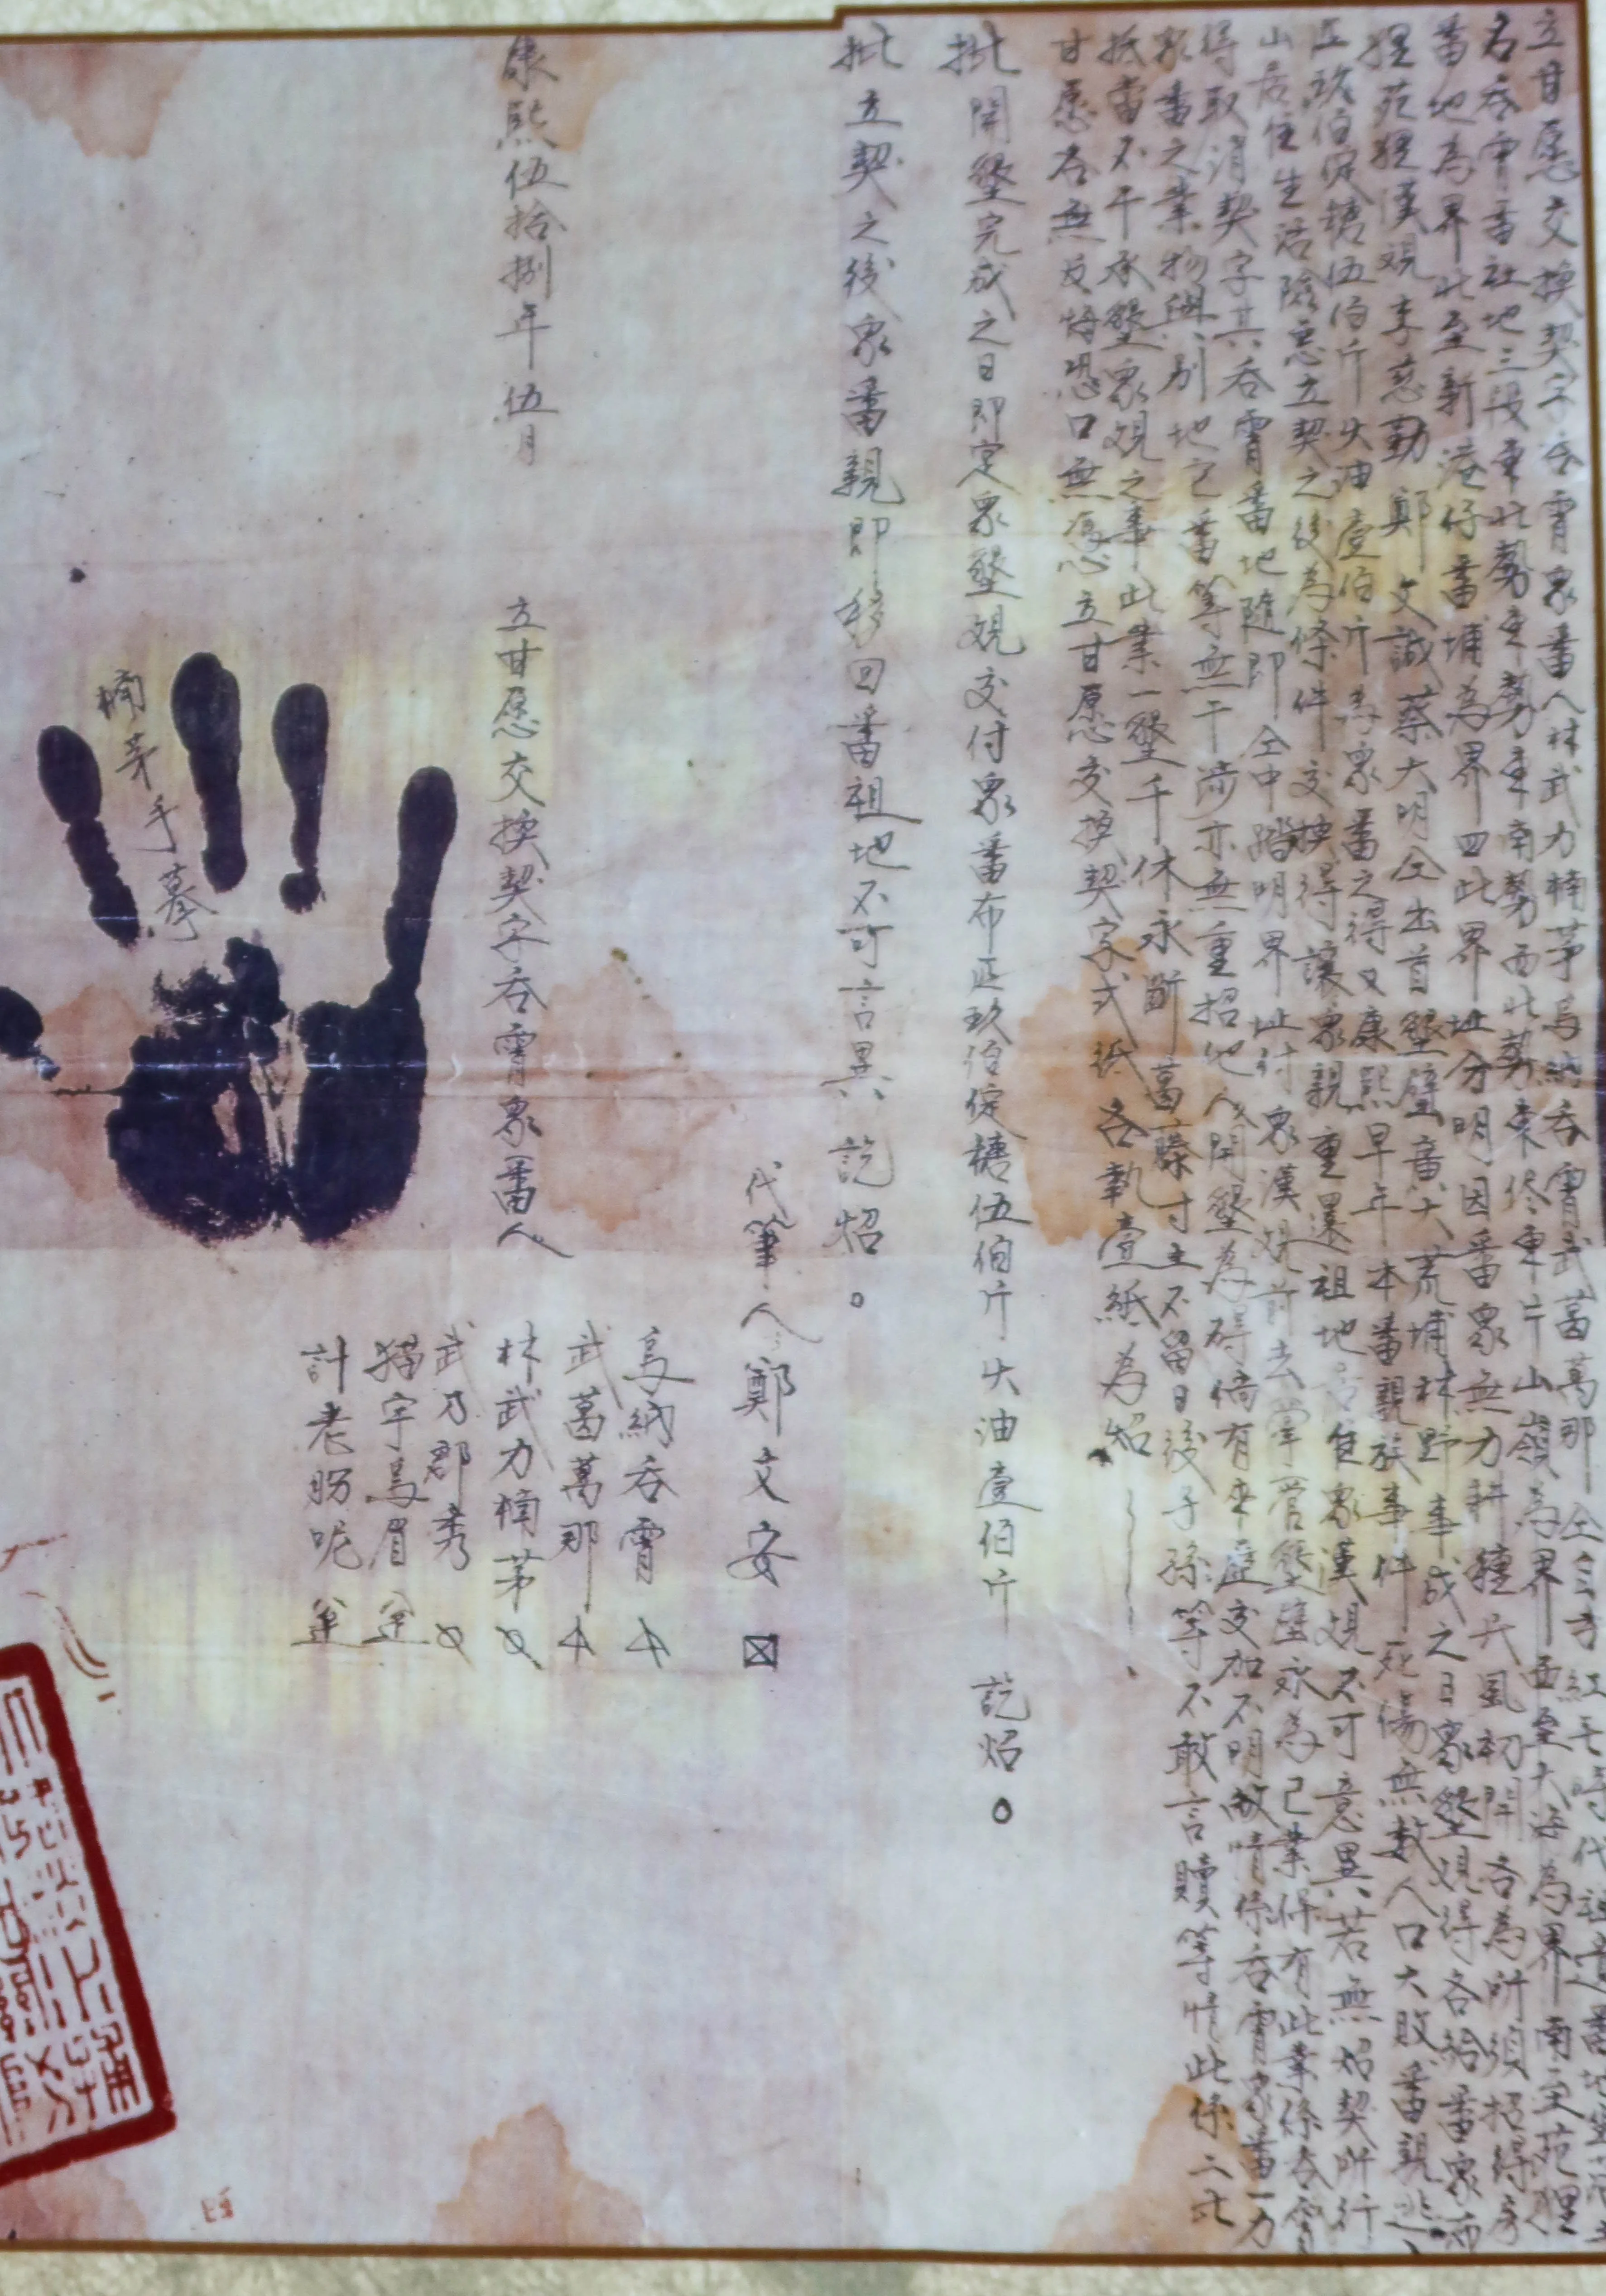 立甘愿交換契字吞霄眾番人林武力楠茅烏納吞霄武葛萬那仝三方紅毛時代祖遺番地
名吞霄番社地三段東北勢至勢東南勢西北勢東侭東片山嶺為界西至大海為界南至苑裡
番地為界北至新港仔番埔為界四此界址分明因番眾無力耕種民風初開各為所須招得房
裡苑裡漢親李慈勤鄭文誠蔡大明仝出首墾壁廣大荒埔林野事成之日眾墾親得各給番眾布
疋玖伯定糖伍伯斤火油壹伯斤為眾番之得又康熙早年本番親族事件死傷無數人口大敗番親
山居住生活險惡立契之後為條件交換得讓眾親重還祖地居住眾漢親不可意異若無炤契所行
得取消契字其吞霄番地隨即仝中踏明界址付眾漢親前去掌管墾壁永為己業保有此業係吞霄
眾番之業物與別地之番等無干涉亦無重招他人開墾為碍倘有來歷交加不明敝情係吞霄眾番一力
抵當不干承墾眾親之事此業一墾千休永斷葛藤寸土不留日後子孫等不敢言贖等情此係二比
甘愿各無反悔恐口無憑立甘愿交換契字弍紙各執壹紙為炤
批開墾完成之日即定眾墾親交付眾番布疋玖伯定糖伍伯斤火油壹伯斤 訖炤。
批立契之後眾番親即移回番祖地不可言異 訖炤。
代筆人鄭文安
烏納吞霄
武葛萬那
林武力楠茅
武乃郡秀
猫宇烏眉
計老肦呢
康熙伍拾捌年伍月
立甘愿交換契字吞霄眾番人
楠茅手摹